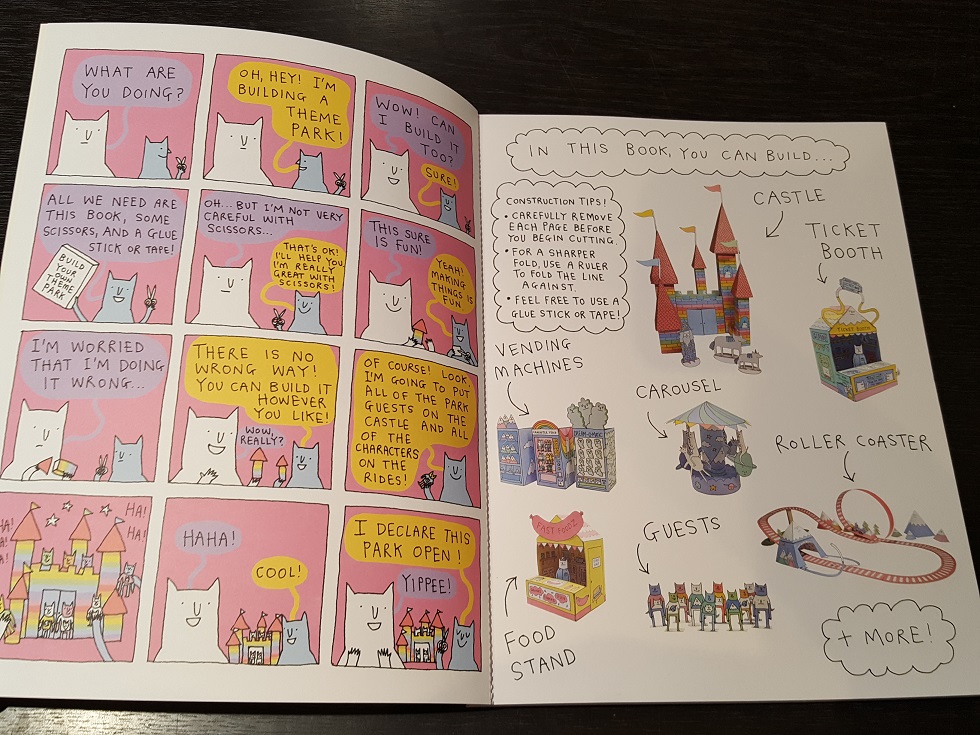 WHAT ARE
YOU DOING?
OH, HEY! I'M
BUILDING A
THEME
PARK!
WOW! CAN
I BUILD IT
TOO?
SURE!
ALL WE NEED ARE
THIS BOOK, SOME
SCISSORS, AND A GLUE
STICK OR TAPE!
BUILD
YOUR
OWN
THEME
PARK
OH... BUT I'M NOT VERY
CAREFUL WITH
SCISSORS...
THAT'S OK!
I'LL HELP YOU.
I'M REALLY
GREAT WITH
SCISSORS!
THIS SURE
IS FUN!
YEAH!
MAKING
THINGS IS
FUN
I'M WORRIED
THAT I'M DOING
IT WRONG...
THERE IS NO
WRONG WAY!
YOU CAN BUILD IT
HOWEVER
YOU LIKE!
WOW,
REALLY?
OF COURSE! LOOK,
I'M GOING TO PUT
ALL OF THE PARK
GUESTS ON THE
CASTLE AND ALL
OF THE
CHARACTERS
ON THE
RIDES!
HA!
HA!
HA!
HA!
A!
HAHA!
COOL!
I DECLARE THIS
PARK OPEN!
YIPPEE!
IN THIS BOOK, YOU CAN BUILD...
CONSTRUCTION TIPS!
• CAREFULLY REMOVE
EACH PAGE BEFORE
YOU BEGIN CUTTING.
• FOR A SHARPER
FOLD, USE A RULER
TO FOLD THE LINE
AGAINST.
• FEEL FREE TO USE A
GLUE STICK OR TAPE!
CASTLE
TICKET
BOOTH
TICKET BOOTH
VENDING
MACHINES
CAROUSEL
ROLLER COASTER
FAST FOODZ
GUESTS
FOOD
STAND
+ MORE!